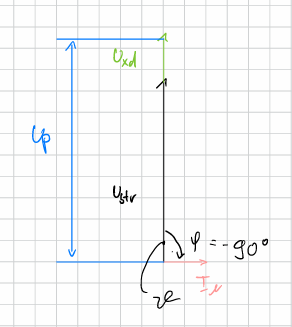 Uxd
Up
Ustr
φ = -90°
I
ϑ